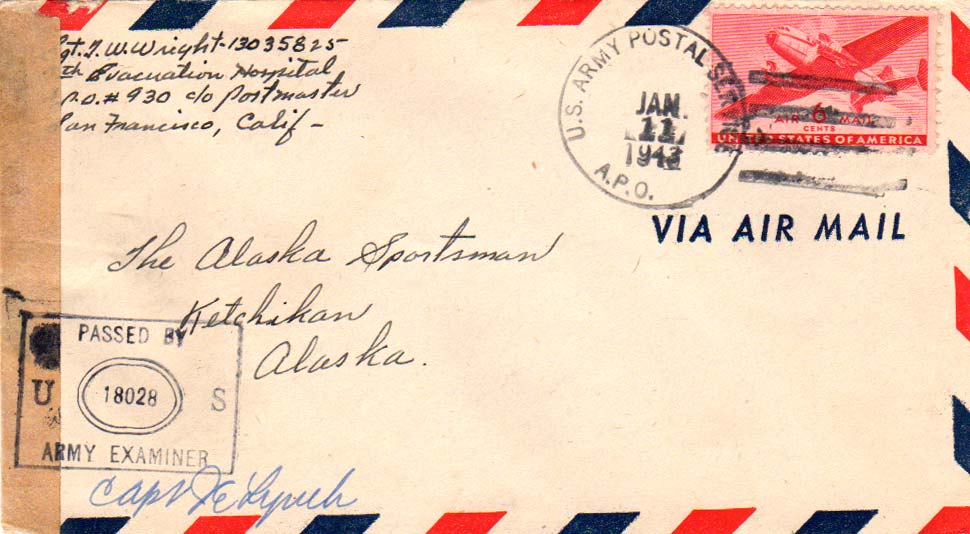 gt. T. W. Wright - 13035825
th Evacuation Hospital
P.O. # 930 c/o Postmaster
San Francisco, Calif -
U.S. ARMY POSTAL SERVICE
JAN.
11
1943
A.P.O.
AIR 6 MAIL
CENTS
UNITED STATES OF AMERICA
VIA AIR MAIL
The Alaska Sportsman
Ketchikan
Alaska.
PASSED BY
U 18028 S
ARMY EXAMINER
Capt J E Lynch